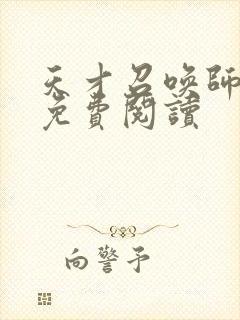 天才召喚師
免費閱讀
向警予